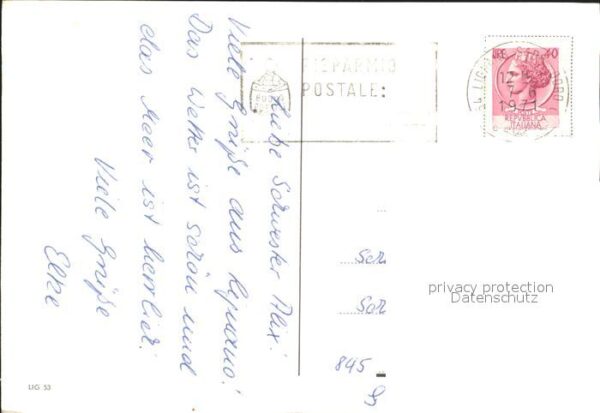 Liebe Schwester Alxi.
Viele Grüße aus Lignano!
Das Wetter ist schön und
das Meer ist herrlich.
Viele Grüße
Elke
RISPARMIO
POSTALE:
LIRE 40
12
1971
REPVBBLICA
ITALIANA
Sch
Sch
845
privacy protection
Datenschutz
LIG 53